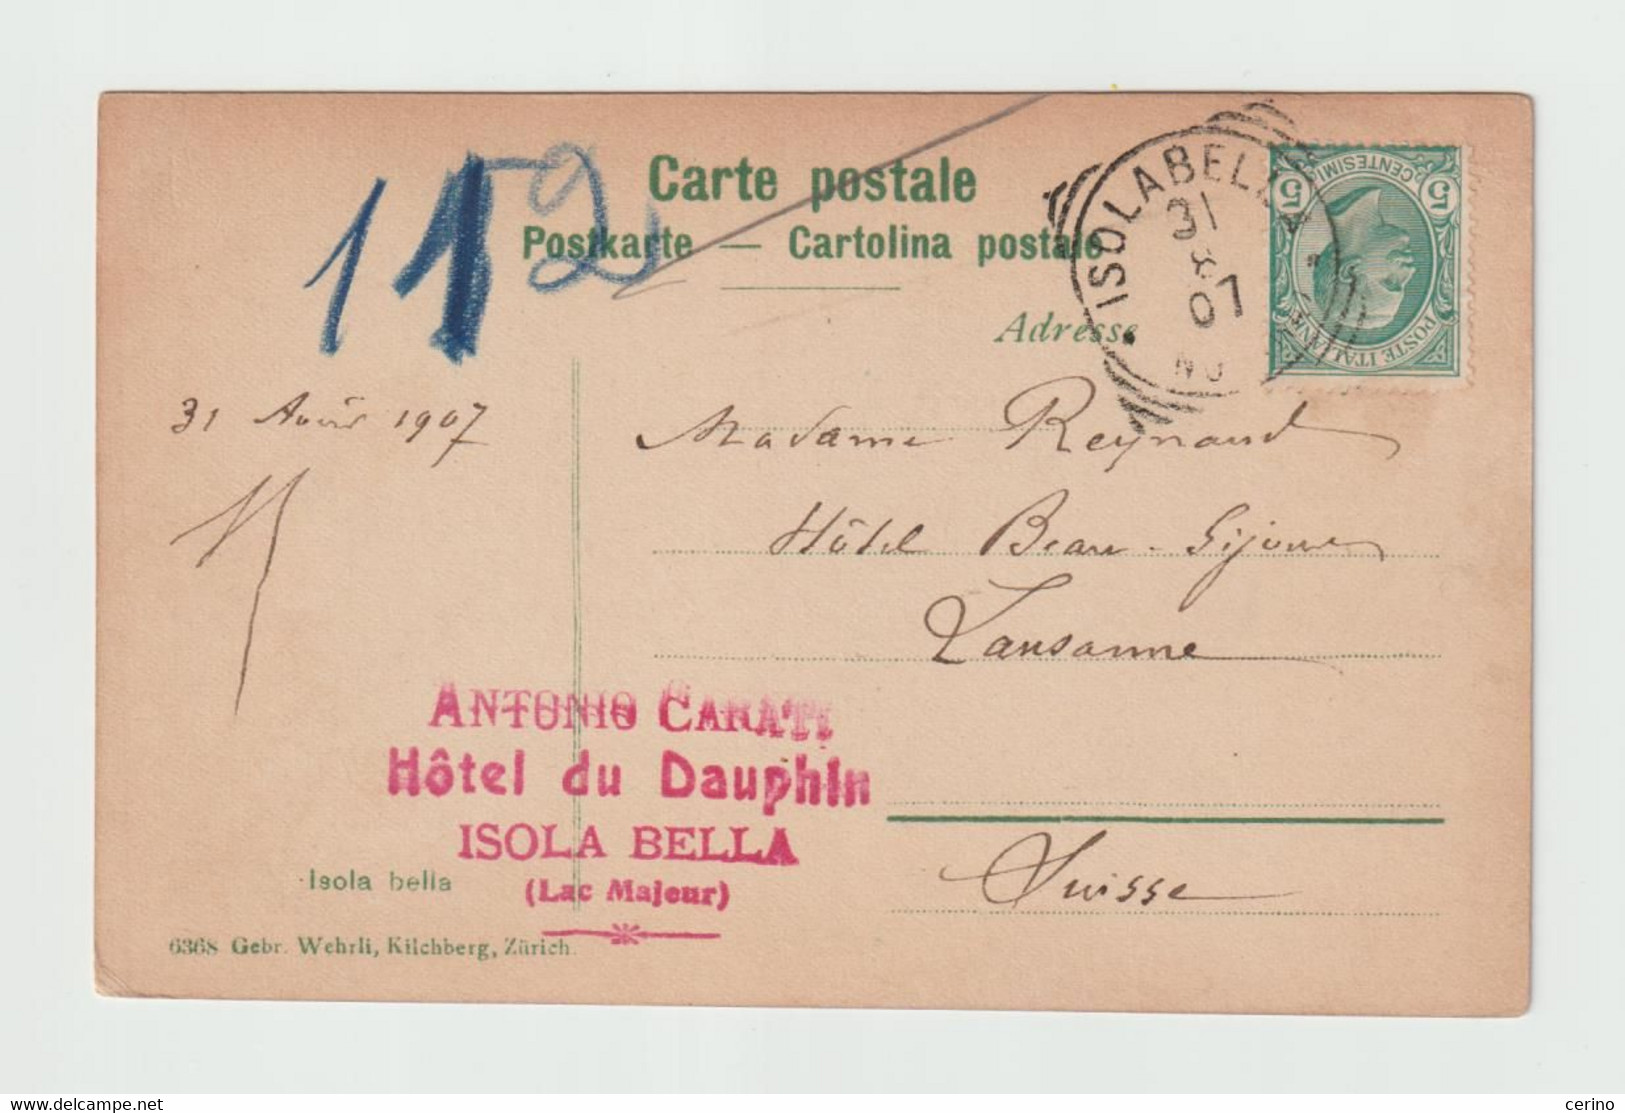 112
Carte postale
Postkarte — Cartolina postale
ISOLABELLA
31
8
07
5 CENTESIMI 5
POSTE ITALIANE
Adresse
31 Août 1907
Madame Reynaud
Hôtel Beau-Séjour
Lausanne
ANTONIO CARATI
Hôtel du Dauphin
ISOLA BELLA
(Lac Majeur)
Isola bella
Suisse
6368 Gebr. Wehrli, Kilchberg, Zürich.
www.delcampe.net
cerino